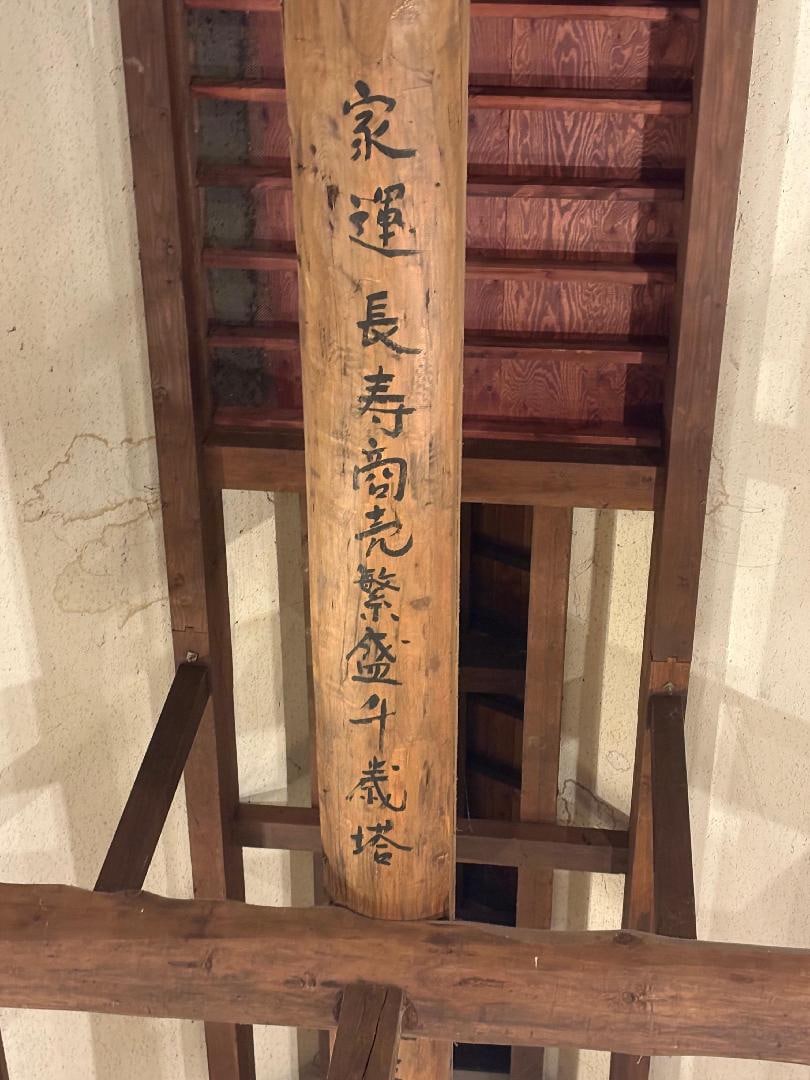 家運長寿商売繁盛千歳塔